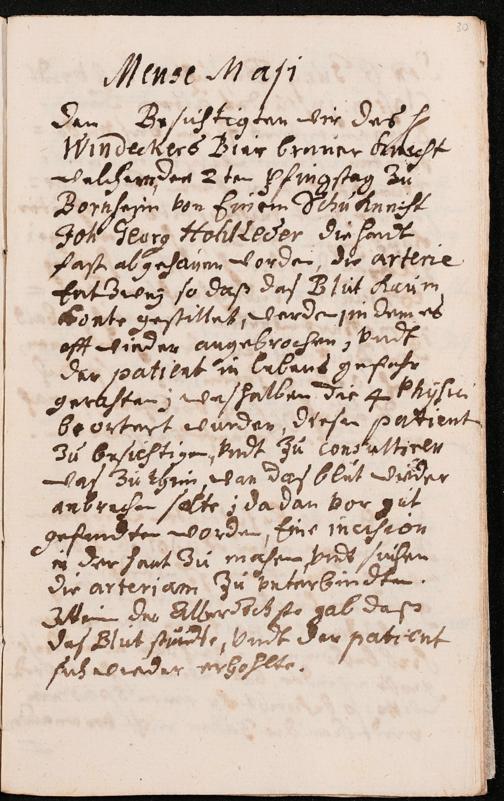 30
Mense Maji
den Besichtigten wir des H
Windeckers Bier brauer knecht
welchem, den 2ten Pfingstag zu
Bornheim von Einem Schuknecht
Joh Georg Hohlleder die handt
fast abgehauen worden, die arterie
Entzwey so daß das Blut kaum
konte gestillet, werden, in dem es
offt wieder angebrochen, undt
der patient in lebens gefahr
gerathen; weshalben die 4 Physici
beortert wurden, diesen patient
zu besichtigen, undt zu consultieren
was zu thun, wan das blut wieder
anbrechen solte; da dan vor gut
gefundten worden, Eine incision
in der haut zu machen, undt suchen
die arteriam zu unterbindten.
Allein der Allerhöchste gab daß
das Blut stundte, undt der patient
sich wieder erhohlte.